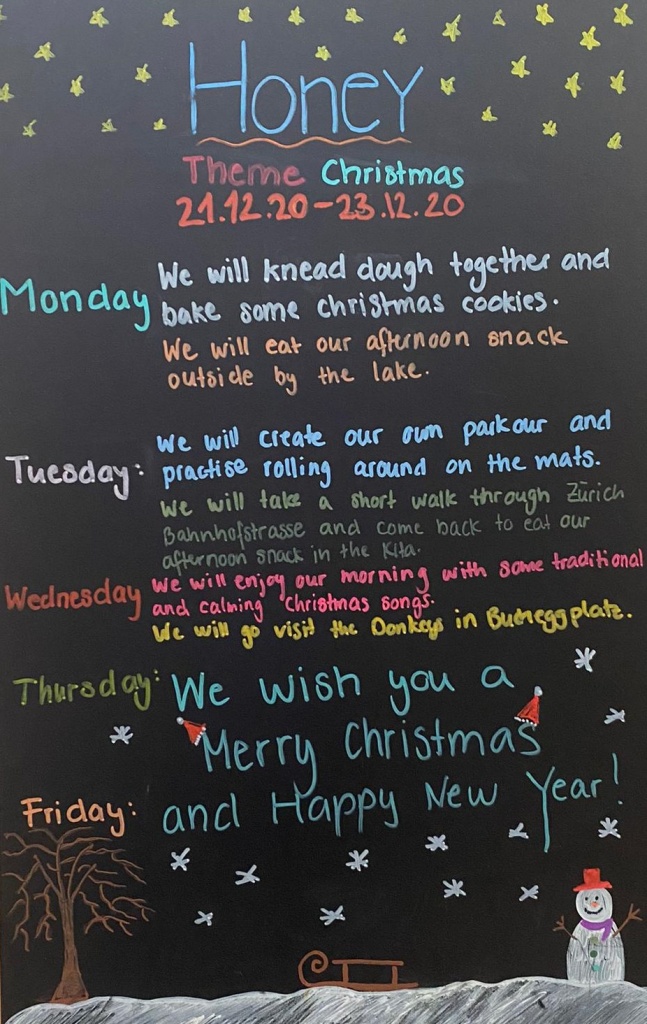 Honey
Theme Christmas
21.12.20-23.12.20
Monday
We will knead dough together and
bake some christmas cookies.
We will eat our afternoon snack
outside by the lake.
Tuesday:
We will create our own parkour and
practise rolling around on the mats.
We will take a short walk through Zürich
Bahnhofstrasse and come back to eat our
afternoon snack in the Kita.
Wednesday
We will enjoy our morning with some traditional
and calming Christmas songs.
We will go visit the Donkeys in Bucheggplatz.
Thursday:
We wish you a
Merry Christmas
Friday:
and Happy New Year!